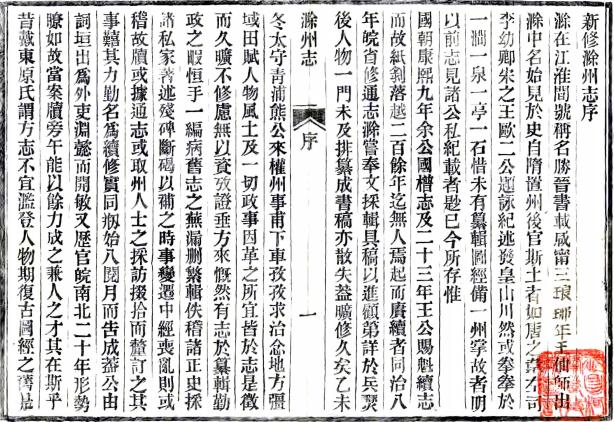 新修滁州志序
滁在江淮間號稱名勝晉書載咸甯三琅琊年王伷師出
滁中名始見於史自隋置州後官斯土者如唐之韋左司
李幼卿宋之王歐二公題詠紀述發皇山川然或拳拳於
一澗一泉一亭一石惜未有纂輯圖經備一州掌故者明
以前志見諸公私紀載者尟已今所存惟
國朝康熙九年余公國㯳志及二十三年王公賜魁續志
而故紙剝落越二百餘年迄無人焉起而賡續者同治八
年皖省修通志滁嘗奉文採輯具稿以進顧第詳於兵燹
後人物一門未及排纂成書稿亦散失葢曠修久矣乙未
滁州志
序
一
冬太守青浦熊公來權州事甫下車孜孜求治念地方疆
域田賦人物風土及一切政事因革之所宜皆於志是徵
而久曠不修慮無以資攷證垂方來慨然有志於纂輯勤
政之暇恒手一編病舊志之蕪漏删繁輯佚稽諸正史採
諸私家著述殘碑斷碣以補之時事變遷中經喪亂則或
稽故牘或據通志或取州人士之採訪掇拾而釐訂之其
事囏其力勤名爲續修實同剏始八閱月而告成葢公由
詞垣出爲外吏淵懿而開敏又歷官皖南北二十年形勢
瞭如故當案牘旁午能以餘力成之兼人之才其在斯乎
昔戴東原氏謂方志不宜濫登人物期復古圖經之舊是